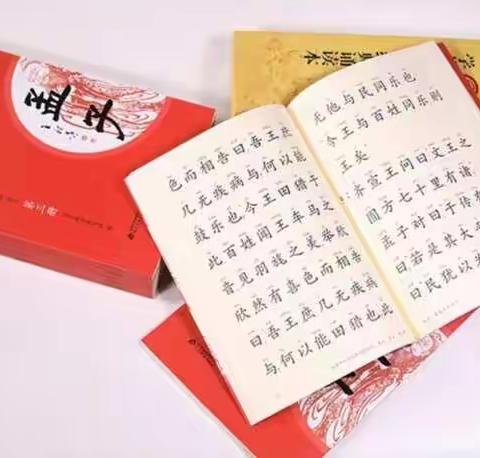 孟子
第三册
诵读本
色而相告曰吾王庶
几无疾病与何以能
鼓乐也今王田猎于
此百姓闻王车马之
音见羽旄之美举欣
欣然有喜色而相告
曰吾王庶几无疾病
与何以能田猎也此
无他与民同乐也
今王与百姓同乐则
王矣
齐宣王问曰文王之
囿方七十里有诸
孟子对曰于传有
曰若是其大
曰民犹以为